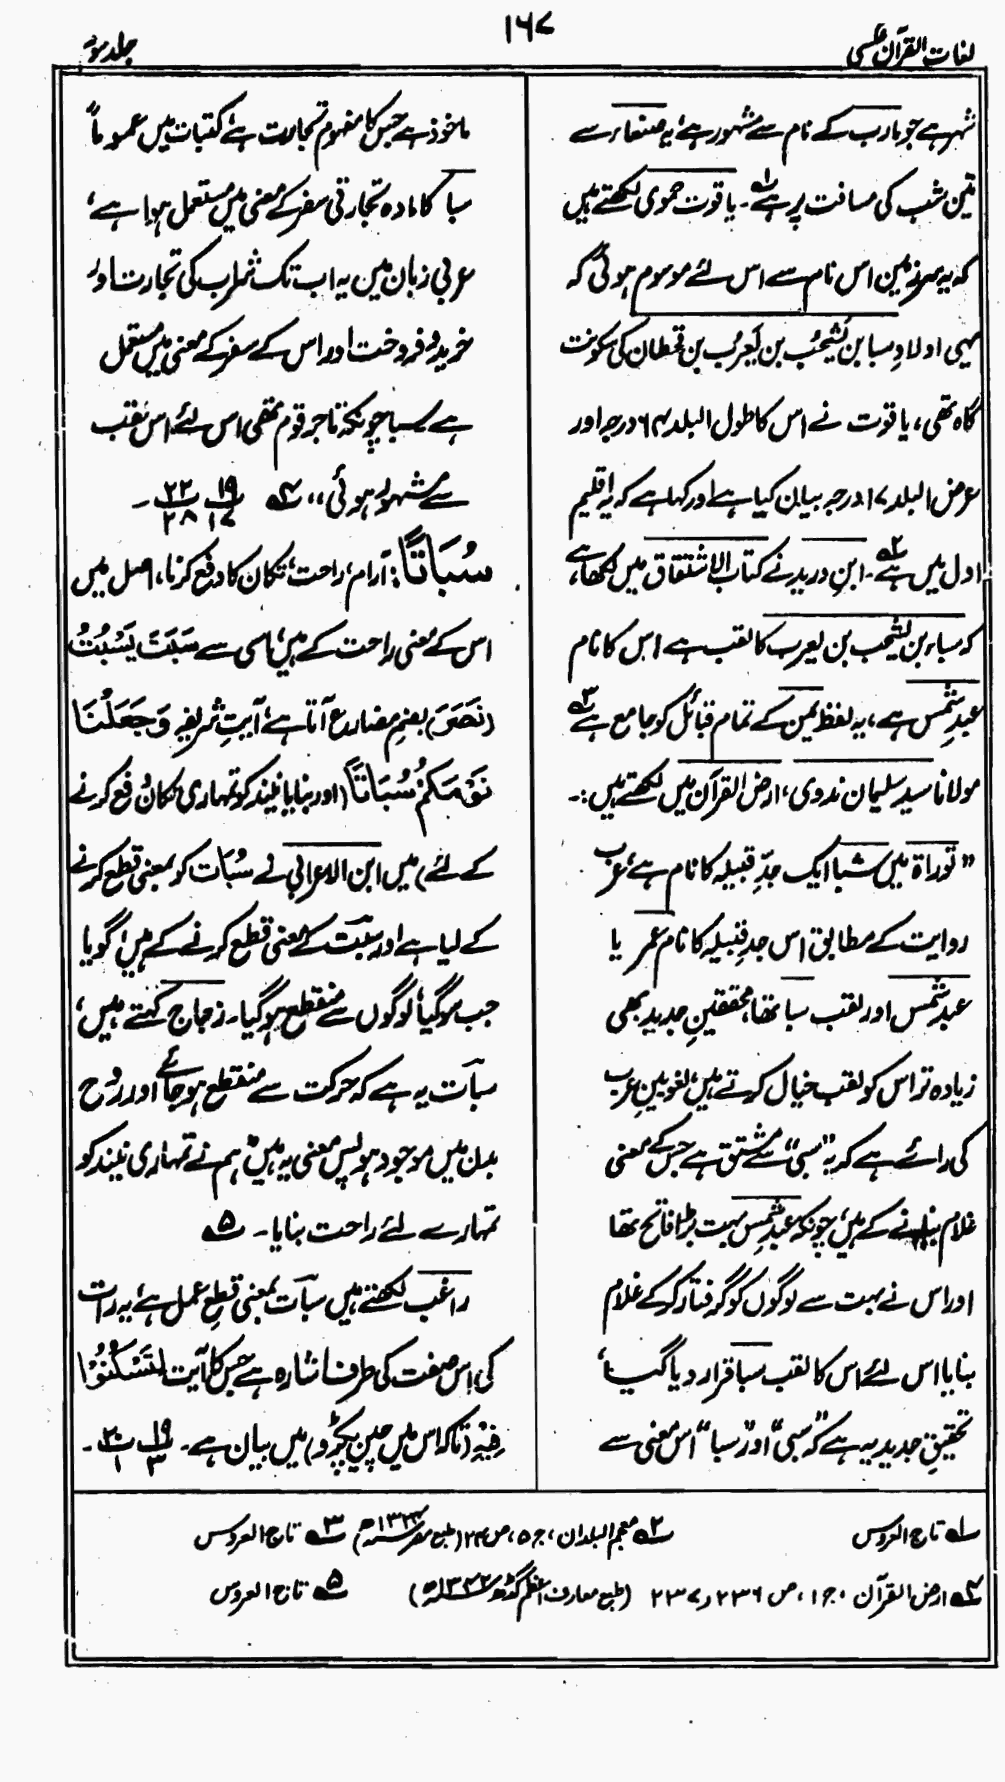 لغات القرآن عکسی
۱۶۷
جلد سوم
شہر ہے جو مارب کے نام سے مشہور ہے، یہ صنعاء سے
تین شب کی مسافت پر ہے ۱؎۔ یاقوت حموی لکھتے ہیں
کہ یہ سرزمین اس نام سے اس لئے موسوم ہوئی کہ
یہی اولادِ سبا بن یَشْجُب بن یَعرُب بن قحطان کی سکونت
گاہ تھی، یاقوت نے اس کا طول البلد ۶۴ درجہ اور
عرض البلد ۱۷ درجہ بیان کیا ہے اور کہا ہے کہ یہ اقلیم
اول میں ہے ۲؎۔ ابنِ درید نے کتاب الاشتقاق میں لکھا ہے،
کہ سباء بن یشجب بن یعرب کا لقب ہے اس کا نام
عبدِ شمس ہے، یہ لفظ یمن کے تمام قبائل کو جامع ہے ۳؎
مولانا سید سلیمان ندوی، ارض القرآن میں لکھتے ہیں:۔
"توراۃ میں شبا ایک جدِّ قبیلہ کا نام ہے، عرب
روایت کے مطابق اس جدِ قبیلہ کا نام عمر یا
عبدِ شمس اور لقب سبا تھا، محققینِ جدید بھی
زیادہ تر اس کو لقب خیال کرتے ہیں، لغویینِ عرب
کی رائے ہے کہ یہ "سبی" سے مشتق ہے جس کے معنی
غلام بنانے کے ہیں، چونکہ عبدِ شمس بہت بڑا فاتح تھا
اور اس نے بہت سے لوگوں کو گرفتار کر کے غلام
بنایا اس لئے اس کا لقب سبا قرار دیا گیا،
تحقیقِ جدید یہ ہے کہ "سبی" اور "سبا" اس معنی سے
ماخوذ ہے جس کا مفہوم تجارت ہے، کتبات میں عموماً
سبا کا مادہ تجارتی سفر کے معنی میں مستعمل ہوا ہے،
عربی زبان میں یہ اب تک شراب کی تجارت اور
خرید و فروخت اور اس کے سفر کے معنی میں مستعمل
ہے سبا چونکہ تاجر قوم تھی اس لئے اس لقب
سے مشہور ہوئی،، ۴؎ ۱۹/۱۷ ۲۲/۲۸ ۔
سُبَاتًا: آرام، راحت، تکان کا دفع کرنا، اصل میں
اس کے معنی راحت کے ہیں، اسی سے سَبَتَ یَسْبُتُ
(نَصَرَ) بضمِ مضارع آتا ہے، آیتِ شریفہ وَجَعَلْنَا
نَوْمَکُمْ سُبَاتًا (اور بنایا نیند کو تمہاری تکان دفع کرنے
کے لئے) میں ابن الاعرابی نے سُبَات کو بمعنی قطع کرنے
کے لیا ہے اور سَبْت کے معنی قطع کرنے کے ہیں، گویا
جب سوگیا، لوگوں سے منقطع ہوگیا۔ زجاج کہتے ہیں،
سبات یہ ہے کہ حرکت سے منقطع ہوجائے اور روح
بدن میں موجود ہو پس معنی یہ ہیں، ہم نے تمہاری نیند کو
تمہارے لئے راحت بنایا۔ ۵؎
راغب لکھتے ہیں سبات بمعنی قطعِ عمل ہے، یہ رات
کی اس صفت کی طرف اشارہ ہے جس کا آیت لِتَسْکُنُوْا
فِیْہِ (تاکہ اس میں چین پکڑو) میں بیان ہے۔ ۱۹/۳ ۳۰/۱ ۔
۱؎ تاج العروس ۲؎ معجم البلدان، ج ۵، ص ۲۴ (طبع مصر ۱۳۲۴ھ) ۳؎ تاج العروس
۴؎ ارض القرآن، ج ۱، ص ۲۳۶ و ۲۳۷ (طبع معارف اعظم گڈھ ۱۳۳۲ھ) ۵؎ تاج العروس